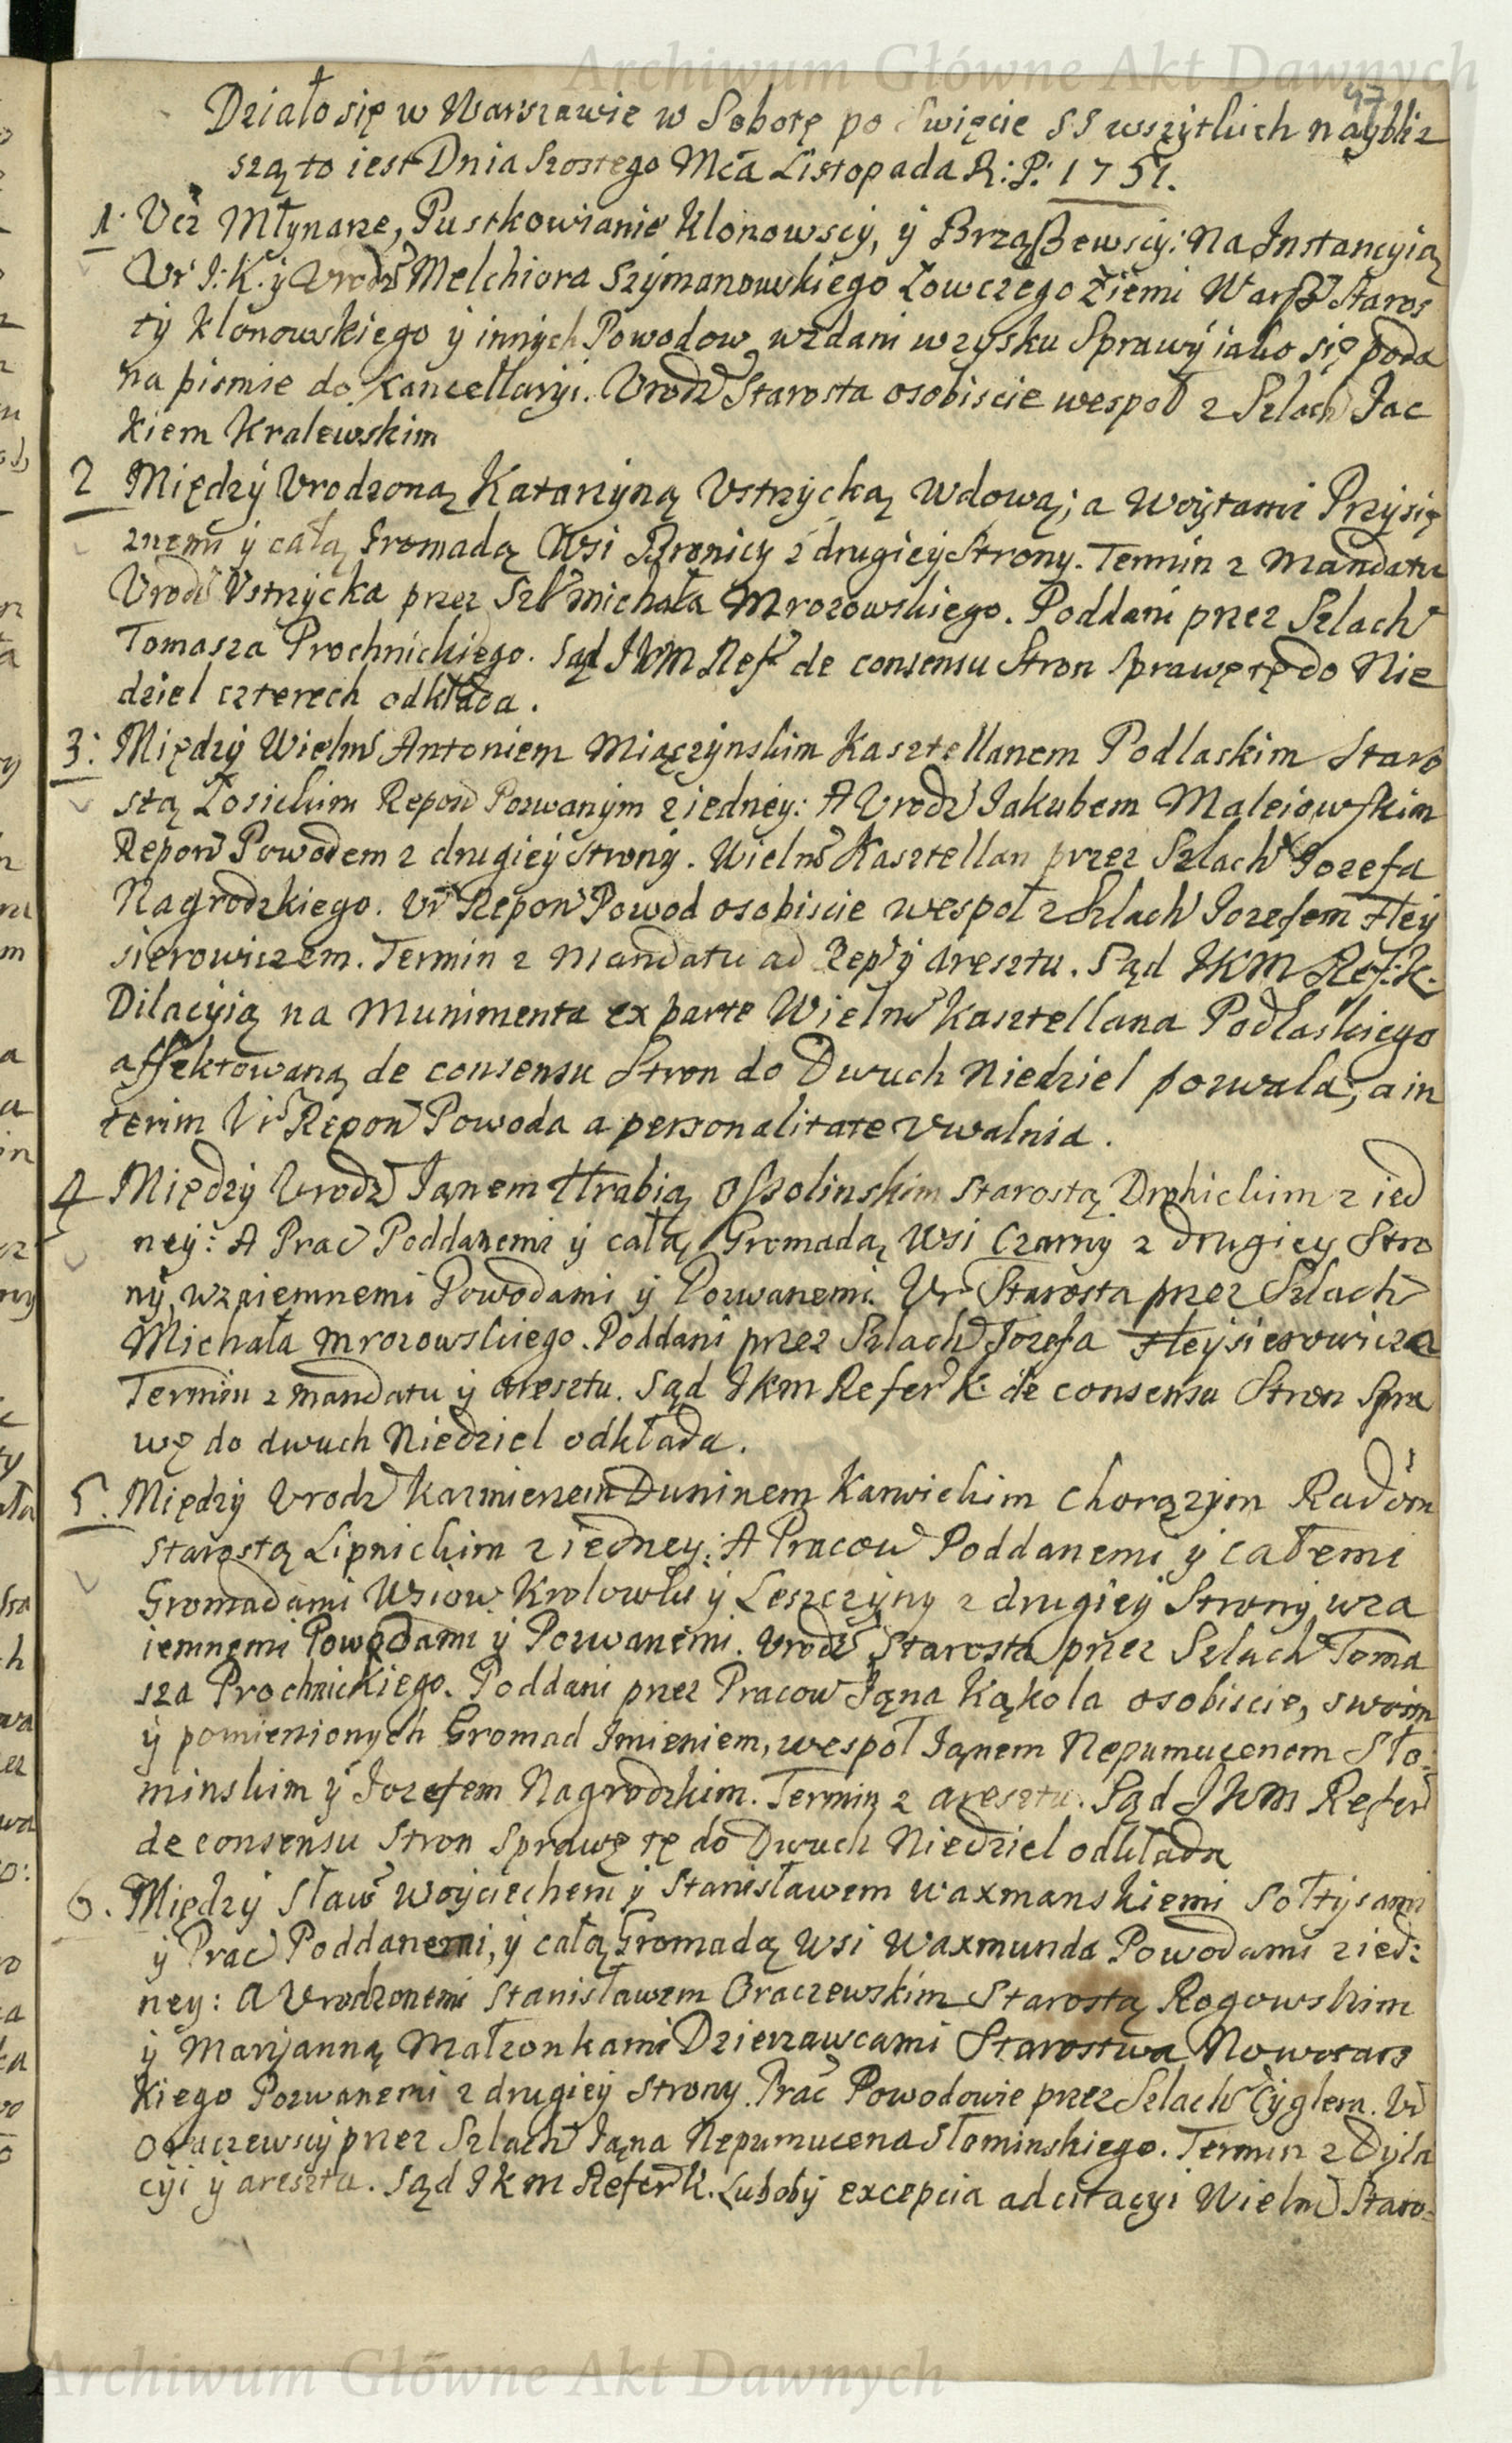 Archiwum Główne Akt Dawnych
47
Działo się w Warszawie w Sobotę po Swięcie SS wszytkich naybliz
szą to iest Dnia Szostego Mca Listopada R: P: 1751.
1. Ucż Młynarze, Pustkowianie Klonowscy, y Brząszewscy: Na Instancyią
Ur J: K. y Urodz Melchiora Szymanowskiego Łowczego Ziemi Warsz Staros
ty Klonowskiego y innych Powodow, wzdani w zysku Sprawy iako się poda
na pismie do Kancellaryi. Urodz Starosta osobiscie wespoł z Szlach Jac
kiem Kralewskim
2 Między Urodzoną Katarzyną Ustrzycką Wdową; a Woytami Przysię
znemi y całą Gromadą Wsi Bronicy z drugiey Strony. Termin z Mandatu
Urodz Ustrzycka przez Szl Michała Mrozowskiego. Poddani przez Szlach
Tomasza Prochnickiego. Sąd JKM Ref de consensu Stron Sprawę tę do Nie
dziel czterech odkłada.
3: Między Wielm Antoniem Miączynskim Kasztellanem Podlaskim Staro
stą Łosickim Repon Pozwanym z iedney: A Urodz Jakubem Maleiowskim
Repon Powodem z drugiey Strony. Wielm Kasztellan przez Szlach Jozefa
Nagrodzkiego. Ur Repon Powod osobiscie wespoł z Szlach Jozefem Hey
sierowiczem. Termin z Mandatu ad Rep y Aresztu. Sąd JKM Ref: K.
Dilacyią na Munimenta ex parte Wielm Kasztellana Podlaskiego
affektowaną de consensu Stron do Dwuch Niedziel pozwala; a in
terim Ur Repon Powoda a personalitate uwalnia.
4 Między Urodz Janem Hrabią Ossolinskim Starostą Drohickim z ied
ney: A Prac Poddanemi y całą Gromadą Wsi Czarny z drugiey Stro
ny, wzaiemnemi Powodami y Pozwanemi. Ur Starosta przez Szlach
Michała Mrozowskiego. Poddani przez Szlach Jozefa Heysierowicza
Termin z Mandatu y Aresztu. Sąd JKM Refer K: de consensu Stron Spra
wę do dwuch Niedziel odkłada.
5. Między Urodz Kazmierzem Duninem Karwickim Chorązym Radom
Starostą Lipnickim z iedney: A Pracow Poddanemi y całemi
Gromadami Wsiow Krolowki y Leszczyny z drugiey Strony wza
iemnemi Powodami y Pozwanemi. Urodz Starosta przez Szlach Toma
sza Prochnickiego. Poddani przez Pracow Jana Kąkola osobiscie, swoim
y pomienionych Gromad Imieniem, wespoł Janem Nepumucenem Sło:
minskim y Jozefem Nagrodzkim. Termin z aresztu. Sąd JKM Refer
de consensu Stron Sprawę tę do Dwuch Niedziel odkłada
6. Między Sław Woyciechem y Stanisławem Waxmanskiemi Sołtysami
y Prac Poddanemi, y całą Gromadą Wsi Waxmunda Powodami z ied:
ney: A Urodzonemi Stanisławem Oraczewskim Starostą Rogowskim
y Maryanną Małzonkami Dzierzawcami Starostwa Nowotars
kiego Pozwanemi z drugiey Strony. Prac Powodowie przez Szlach Cyglera. Ur
Oraczewscy przez Szlach Jana Nepumucena Słominskiego. Termin z Dyla
cyi y aresztu. Sąd JKM Refer K. Luboby excepcia adcitacyi Wielm Staro=
Archiwum Główne Akt Dawnych